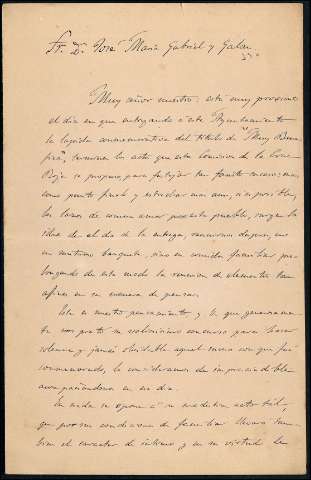 Sr. Dn. José Maria Gabriel y Galan
Muy señor nuestro: está muy proximo
el dia en que entregando á este Ayuntamiento
la lápida conmemorativa del título de "Muy Bené
fica", termina la acto que esta Comision de la Cruz
Roja se propuso, para festejar tan fausto suceso; mas
como punto final y estrechar mas aun, si es posible,
los lazos de comun amor para este pueblo, surgen la
idea de, el dia de la entrega, reunirnos despues, en
un intimo banquete, sino en comida familiar pro-
longando de este modo la reunion de elementos tan
afines en su manera de pensar.
Este es nuestro pensamiento y lo que generosamen-
te nos presto su valiosisimo concurso para hacer
solemne y jamás olvidable aquel suceso con que fué
conmemorado, lo consideramos de imprescindible
acompañarnos en ese dia.
En nada se opone á su modestia acto tal,
que por su condicion de familiar llevará tam-
bien el caracter de intimo y en su virtud le